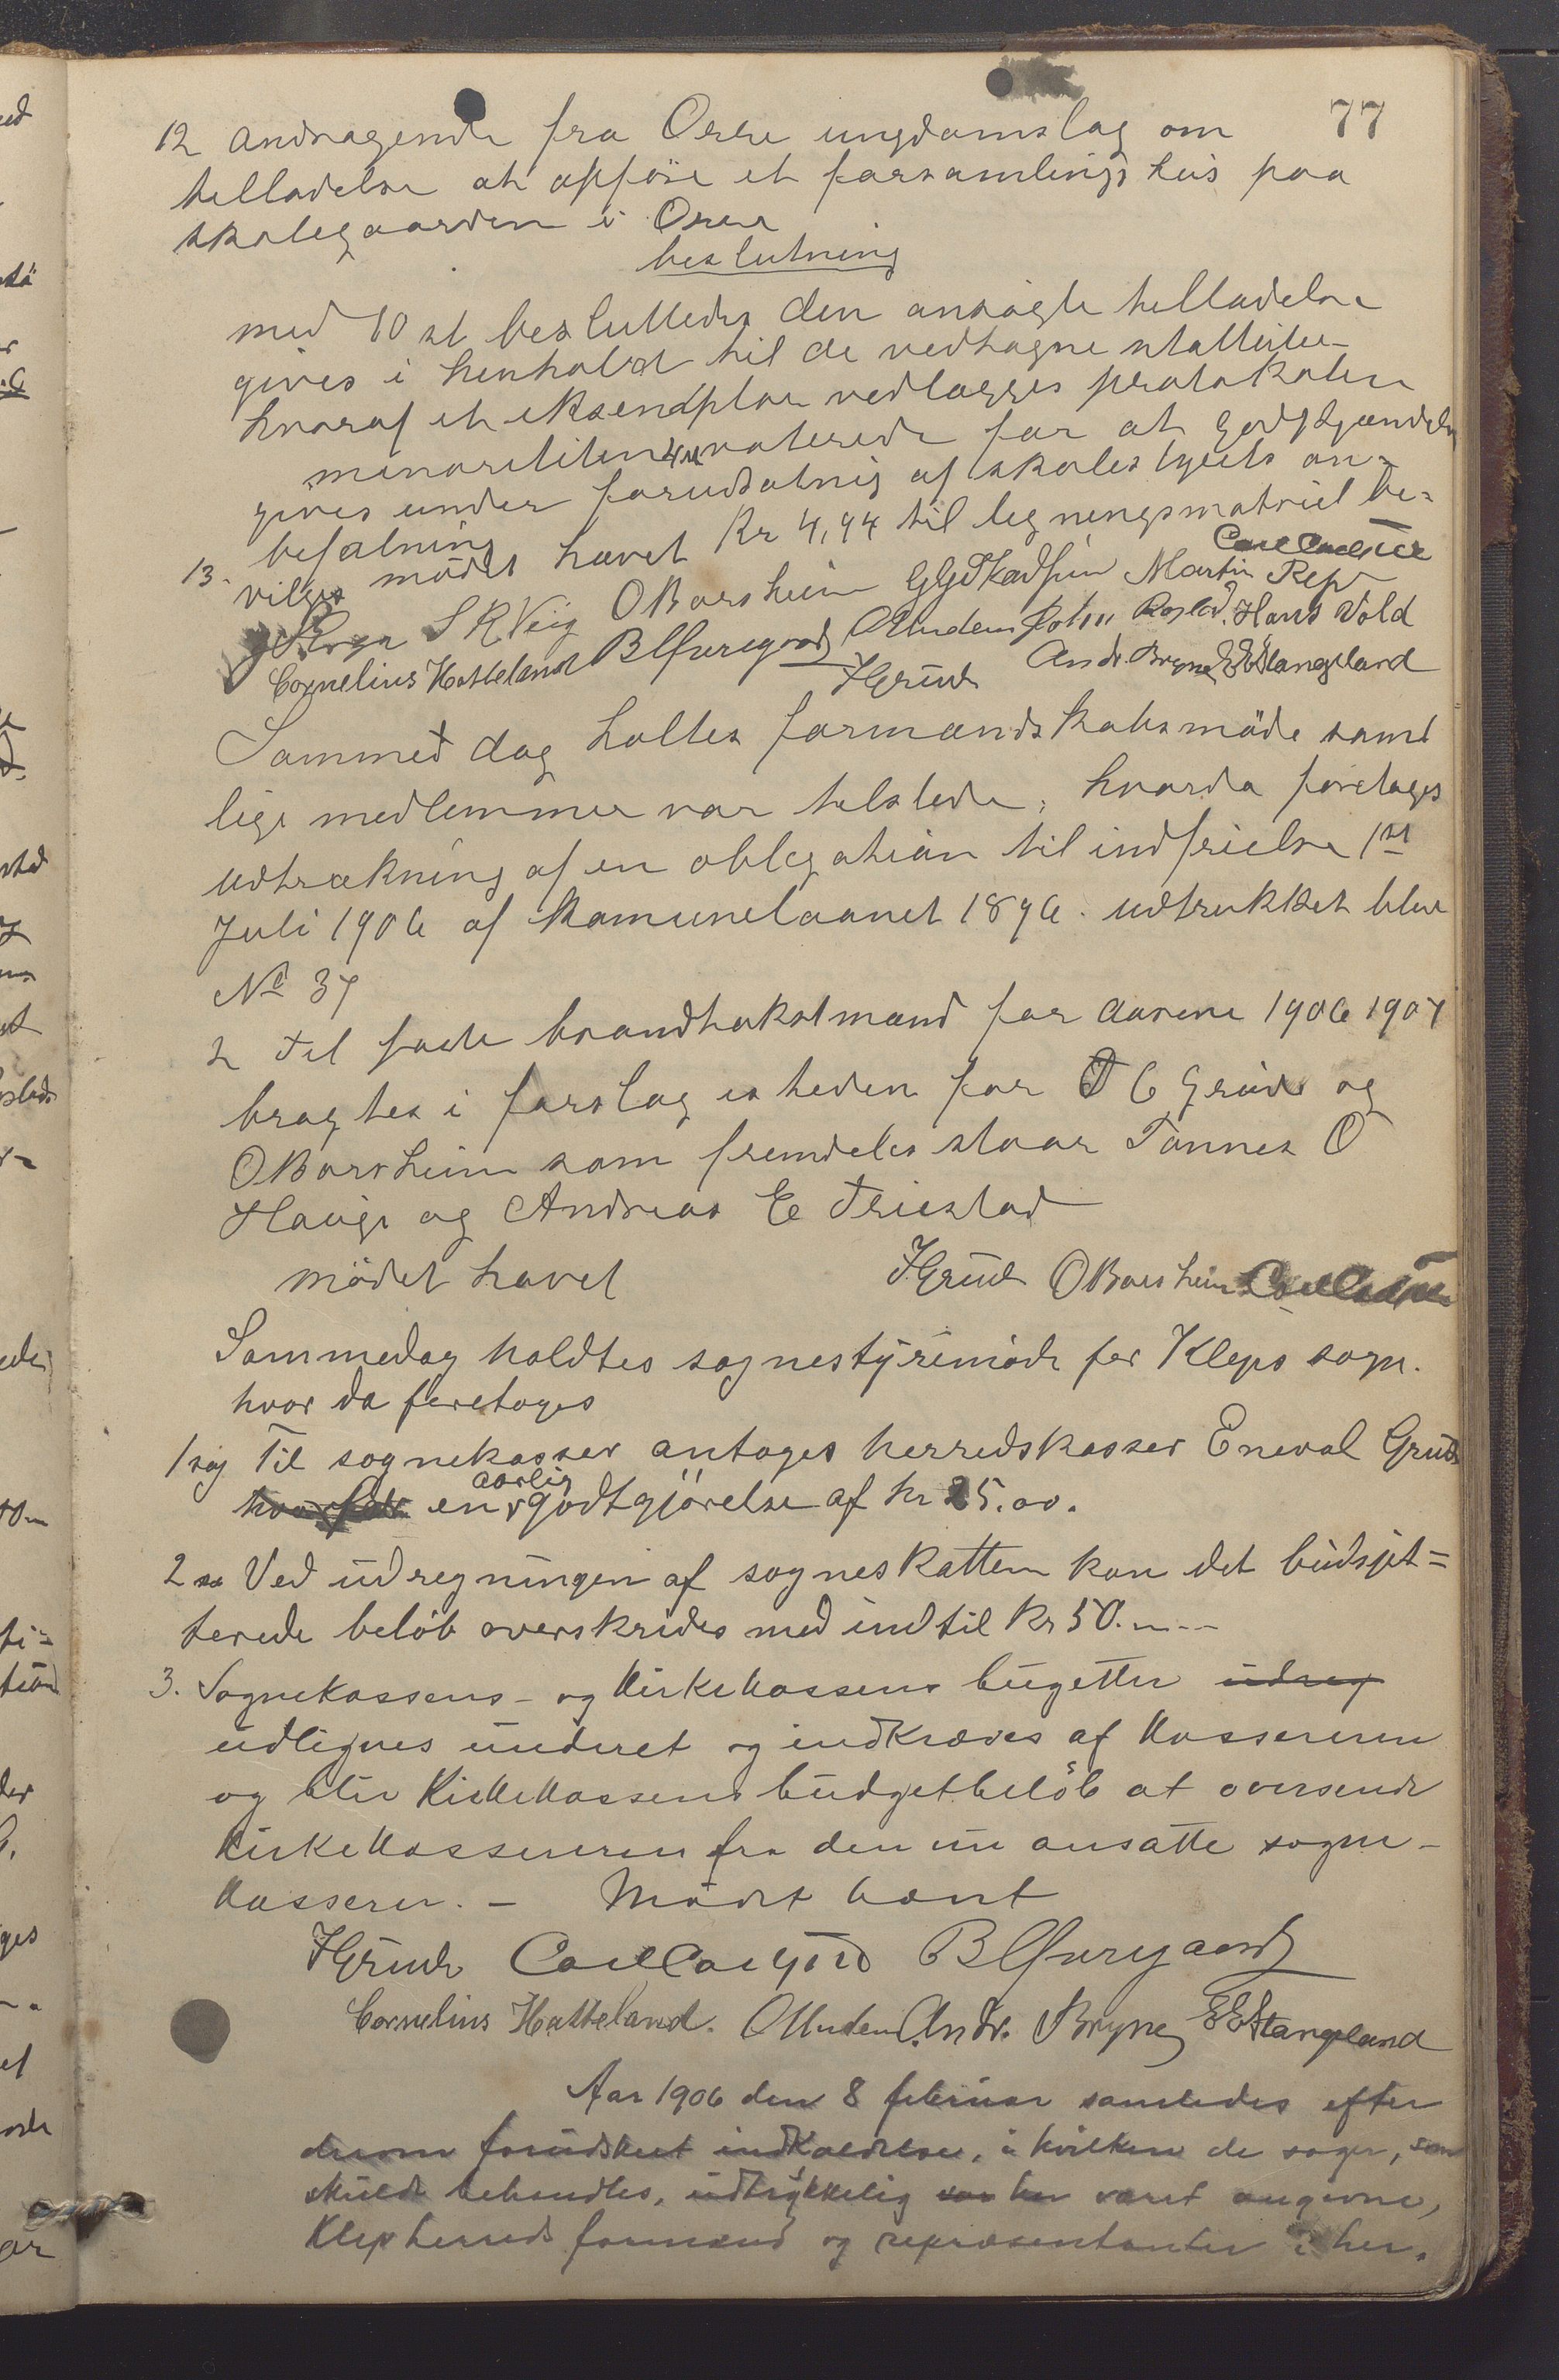 77
12 andragende fra Orre ungdomslag om
telladelse at opföre et forsamlings hus paa
skolegaarden i Orre
beslutning
med 10 st besluttedes den ansögte telladelse
gives i henhold til de vedtagne statuter
hvoraf et eksemplar vedlægges protokolen
minoriteten 4 st voterede for at godkjendelse
gives under forudsætnig af skolestyrets an-
befalning
13. Kr 4,44 til legningsmatriel be-
vilges mödet hævet
Carl Carlsen
S R Veig O Borsheim Martin Rep
John Roslad. Hans Vold
Cornelius Hatteland B Furegaard
J Grude Andr. Bryne E E Stangeland
Sammed dag holtes formandskabsmöde samt
lige medlemmer var telstede, hvorda foretages
udtrækning af en obligation til indfrielse 1st
Juli 1906 af kamunelaanet 1896. udtrukket blev
No 37
2 Tel faste brandtakstmænd for aarene 1906 1907
bragtes i forslag isteden for J G Grude og
O Borsheim som fremdeles staar Tonnes O
Hauge og Andreas E Friestad
mödet hævet
J Grude O Borsheim
Sammedag holdtes sognestÿremöde for Kleps sogn.
hvor da foretoges
1 sag Til sognekasser antoges herredskasser Eneval Grude
hvorfor en aarlig godtgjörelse af kr 25.00.
2 Ved udregningen af sogneskatten kan det budsjet=
terede belöb overskrides med indtil kr 50.—
3. Sognekassens- og Kirkekassens bugetter udreg
udlignes underet og indkræves af Kassereren
og blir Kirkekassens budgetbelöb at oversende
Kirkekassereren fra den nu ansatte sogne-
kasserer. - Mödet hævet
J Grude B Furegaard
Cornelius Hatteland. Andr. Bryne E E Stangeland
Aar 1906 den 8 februar samledes efter
derom forudskeet indkaldelse, i hvilken de sager, som
skulde behandles, udtrykkelig var her været angivne,
Klep herreds formænd og repræsentanter i her.